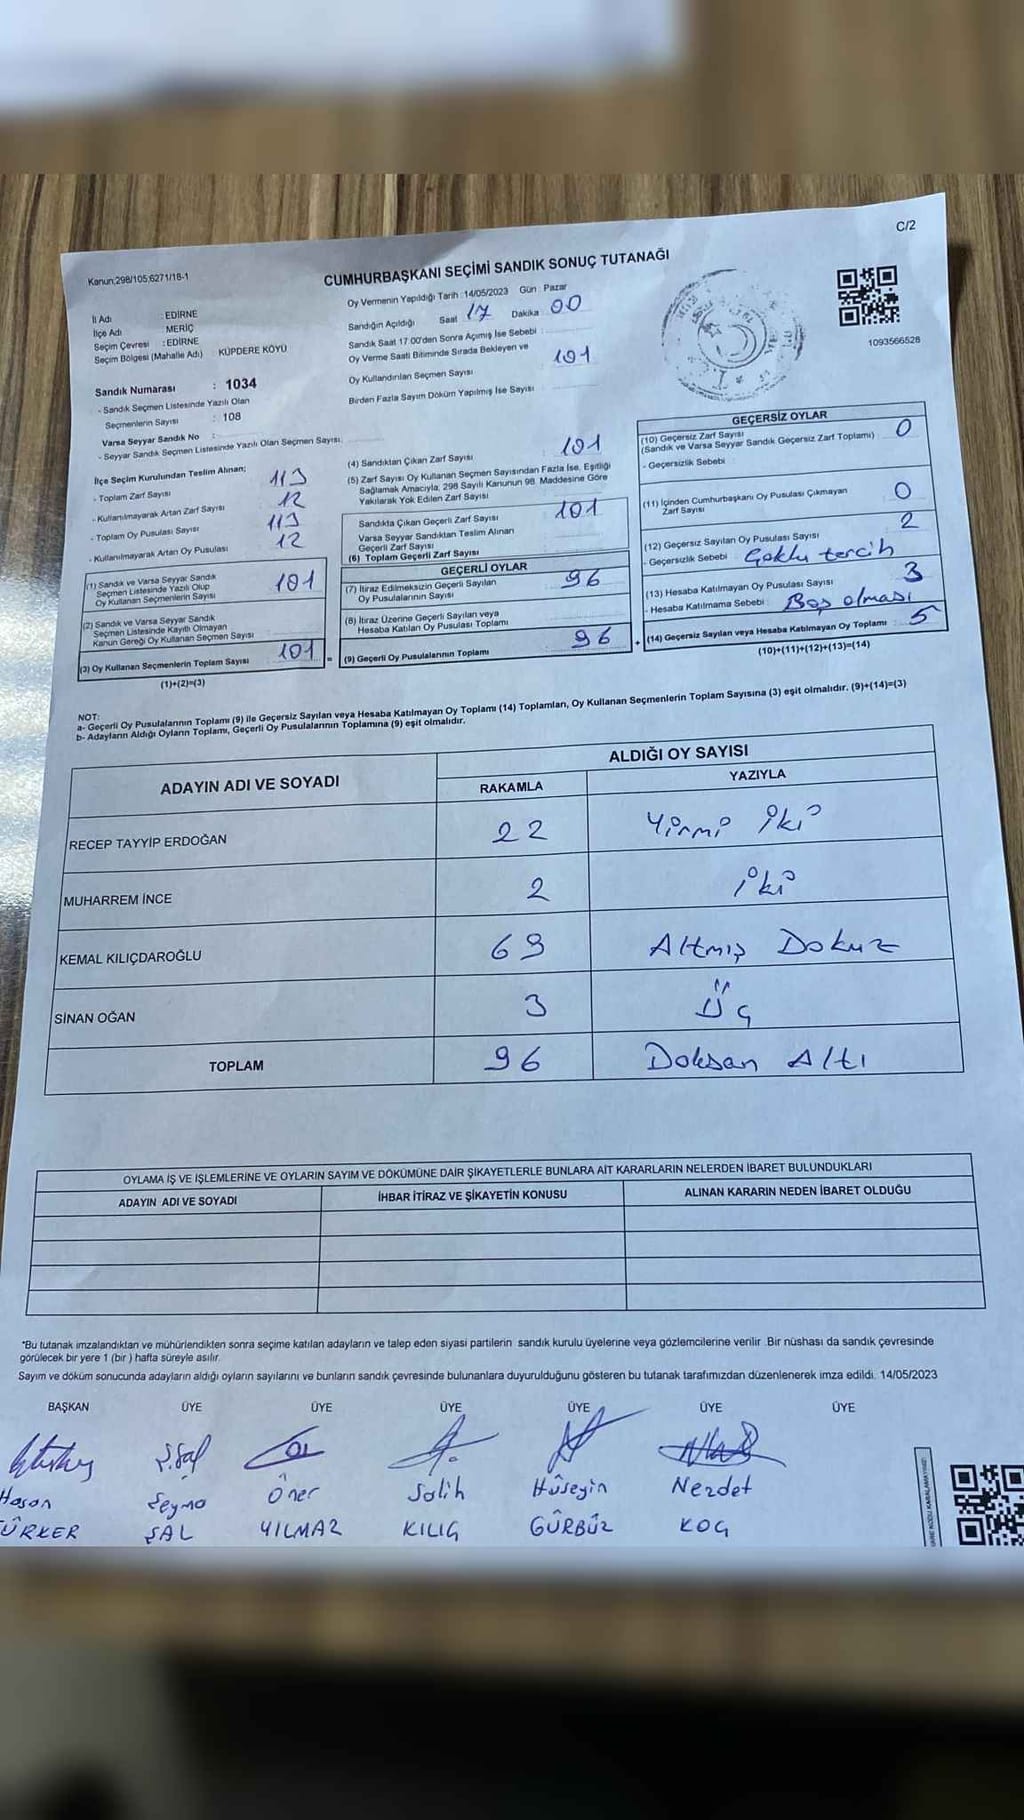 C/2
Kanun;298/105;6271/18-1
CUMHURBAŞKANI SEÇİMİ SANDIK SONUÇ TUTANAĞI
1093566528
İl Adı : EDİRNE
İlçe Adı : MERİÇ
Seçim Çevresi : EDİRNE
Seçim Bölgesi (Mahalle Adı) : KÜPDERE KÖYÜ
Sandık Numarası : 1034
- Sandık Seçmen Listesinde Yazılı Olan
Seçmenlerin Sayısı : 108
Varsa Seyyar Sandık No :
- Seyyar Sandık Listesinde Yazılı Olan Seçmen Sayısı
İlçe Seçim Kurulundan Teslim Alınan;
- Toplam Zarf Sayısı 113
- Kullanılmayarak Artan Zarf Sayısı 12
- Toplam Oy Pusulası Sayısı 113
- Kullanılmayarak Artan Oy Pusulası 12
(1) Sandık ve Varsa Seyyar Sandık
Seçmen Listesinde Yazılı Olup
Oy Kullanan Seçmenlerin Sayısı 101
(2) Sandık ve Varsa Seyyar Sandık
Seçmen Listesinde Kayıtlı Olmayan
Kanun Gereği Oy Kullanan Seçmen Sayısı
(3) Oy Kullanan Seçmenlerin Toplam Sayısı 101 =
(1)+(2)=(3)
Oy Vermenin Yapıldığı Tarih : 14/05/2023 Gün : Pazar
Sandığın Açıldığı Saat 17 Dakika 00
Sandık Saat 17:00'den Sonra Açımış İse Sebebi :
Oy Verme Saati Bitiminde Sırada Bekleyen ve
Oy Kullandırılan Seçmen Sayısı 101
Birden Fazla Sayım Döküm Yapılmış İse Sayısı :
(4) Sandıktan Çıkan Zarf Sayısı 101
(5) Zarf Sayısı Oy Kullanan Seçmen Sayısından Fazla İse, Eşitliği
Sağlamak Amacıyla, 298 Sayılı Kanunun 98. Maddesine Göre
Yakılarak Yok Edilen Zarf Sayısı
Sandıkta Çıkan Geçerli Zarf Sayısı 101
Varsa Seyyar Sandıktan Teslim Alınan
Geçerli Zarf Sayısı
(6) Toplam Geçerli Zarf Sayısı
GEÇERLİ OYLAR
(7) İtiraz Edilmeksizin Geçerli Sayılan
Oy Pusulalarının Sayısı 96
(8) İtiraz Üzerine Geçerli Sayılan veya
Hesaba Katılan Oy Pusulası Toplamı
(9) Geçerli Oy Pusulalarının Toplamı 96 +
GEÇERSİZ OYLAR
(10) Geçersiz Zarf Sayısı
(Sandık ve Varsa Seyyar Sandık Geçersiz Zarf Toplamı) 0
- Geçersizlik Sebebi
(11) İçinden Cumhurbaşkanı Oy Pusulası Çıkmayan
Zarf Sayısı 0
(12) Geçersiz Sayılan Oy Pusulası Sayısı 2
- Geçersizlik Sebebi Çoklu tercih
(13) Hesaba Katılmayan Oy Pusulası Sayısı 3
- Hesaba Katılmama Sebebi : Boş olması
(14) Geçersiz Sayılan veya Hesaba Katılmayan Oy Toplamı : 5
(10)+(11)+(12)+(13)=(14)
NOT:
a- Geçerli Oy Pusulalarının Toplamı (9) ile Geçersiz Sayılan veya Hesaba Katılmayan Oy Toplamı (14) Toplamları, Oy Kullanan Seçmenlerin Toplam Sayısına (3) eşit olmalıdır. (9)+(14)=(3)
b- Adayların Aldığı Oyların Toplamı, Geçerli Oy Pusulalarının Toplamına (9) eşit olmalıdır.
ADAYIN ADI VE SOYADI
ALDIĞI OY SAYISI
RAKAMLA YAZIYLA
RECEP TAYYİP ERDOĞAN 22 Yirmi iki
MUHARREM İNCE 2 iki
KEMAL KILIÇDAROĞLU 69 Altmış Dokuz
SİNAN OĞAN 3 Üç
TOPLAM 96 Doksan Altı
OYLAMA İŞ VE İŞLEMLERİNE VE OYLARIN SAYIM VE DÖKÜMÜNE DAİR ŞİKAYETLERLE BUNLARA AİT KARARLARIN NELERDEN İBARET BULUNDUKLARI
ADAYIN ADI VE SOYADI İHBAR İTİRAZ VE ŞİKAYETİN KONUSU ALINAN KARARIN NEDEN İBARET OLDUĞU
*Bu tutanak imzalandıktan ve mühürlendikten sonra seçime katılan adayların ve talep eden siyasi partilerin sandık kurulu üyelerine veya gözlemcilerine verilir. Bir nüshası da sandık çevresinde
görülecek bir yere 1 (bir) hafta süreyle asılır.
Sayım ve döküm sonucunda adayların aldığı oyların sayılarını ve bunların sandık çevresinde bulunanlara duyurulduğunu gösteren bu tutanak tarafımızdan düzenlenerek imza edildi. 14/05/2023
BAŞKAN ÜYE ÜYE ÜYE ÜYE ÜYE ÜYE
Ş.Şal
Hasan Şeyma Öner Salih Hüseyin Nezdet
ÜRKER ŞAL YILMAZ KILIÇ GÜRBÜZ KOÇ